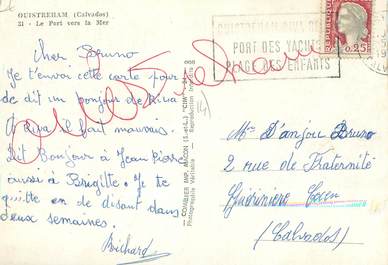 OUISTREHAM (Calvados)
31 - Le Port vers la Mer
Cher Bruno
Je t'envoi cette carte pour
te dit un bonjour de Riva
A Riva il fait mauvais.
Dit Bonjour à Jean Pierre
aussi à Brigitte. Je te
quitte en de disant dans
deux semaines.
Richard
COMBIER IMP. MACON (S.-et-L.) "CIM"
Photographie Véritable - Reproduction Interdite
OUISTREHAM RIVA
PORT DES YACHTS
PLAGE DES ENFANTS
0,25
Mr D'anjou Bruno
2 rue de Fraternité
Guérinière Caen
(Calvados)